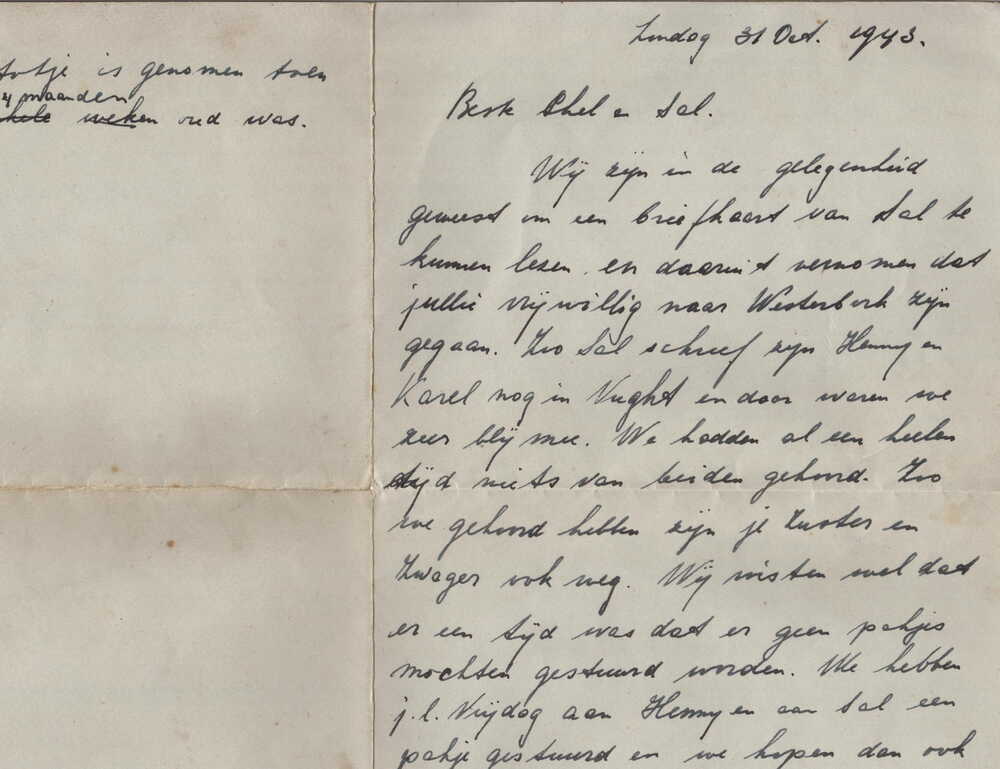 fotje is genomen toen
4 maanden
weken oud was.
Zondag 31 Oct. 1943.
Beste Chel en Sal.
Wij zijn in de gelegenheid
geweest om een briefkaart van Sal te
kunnen lezen en daaruit vernomen dat
jullie vrijwillig naar Westerbork zijn
gegaan. Zoo Sal schreef zijn Henny en
Karel nog in Vught en daar waren we
zeer blij mee. We hadden al een heelen
tijd niets van beiden gehoord. Zoo
we gehoord hebben zijn je Zuster en
Zwager ook weg. Wij wisten wel dat
er een tijd was dat er geen pakjes
mochten gestuurd worden. We hebben
j.l. Vrijdag aan Henny en aan Sal een
pakje gestuurd en we hopen dan ook